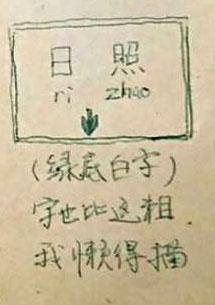 日 照
ri zhao
(绿底白字)
字也比这粗
我懒得描